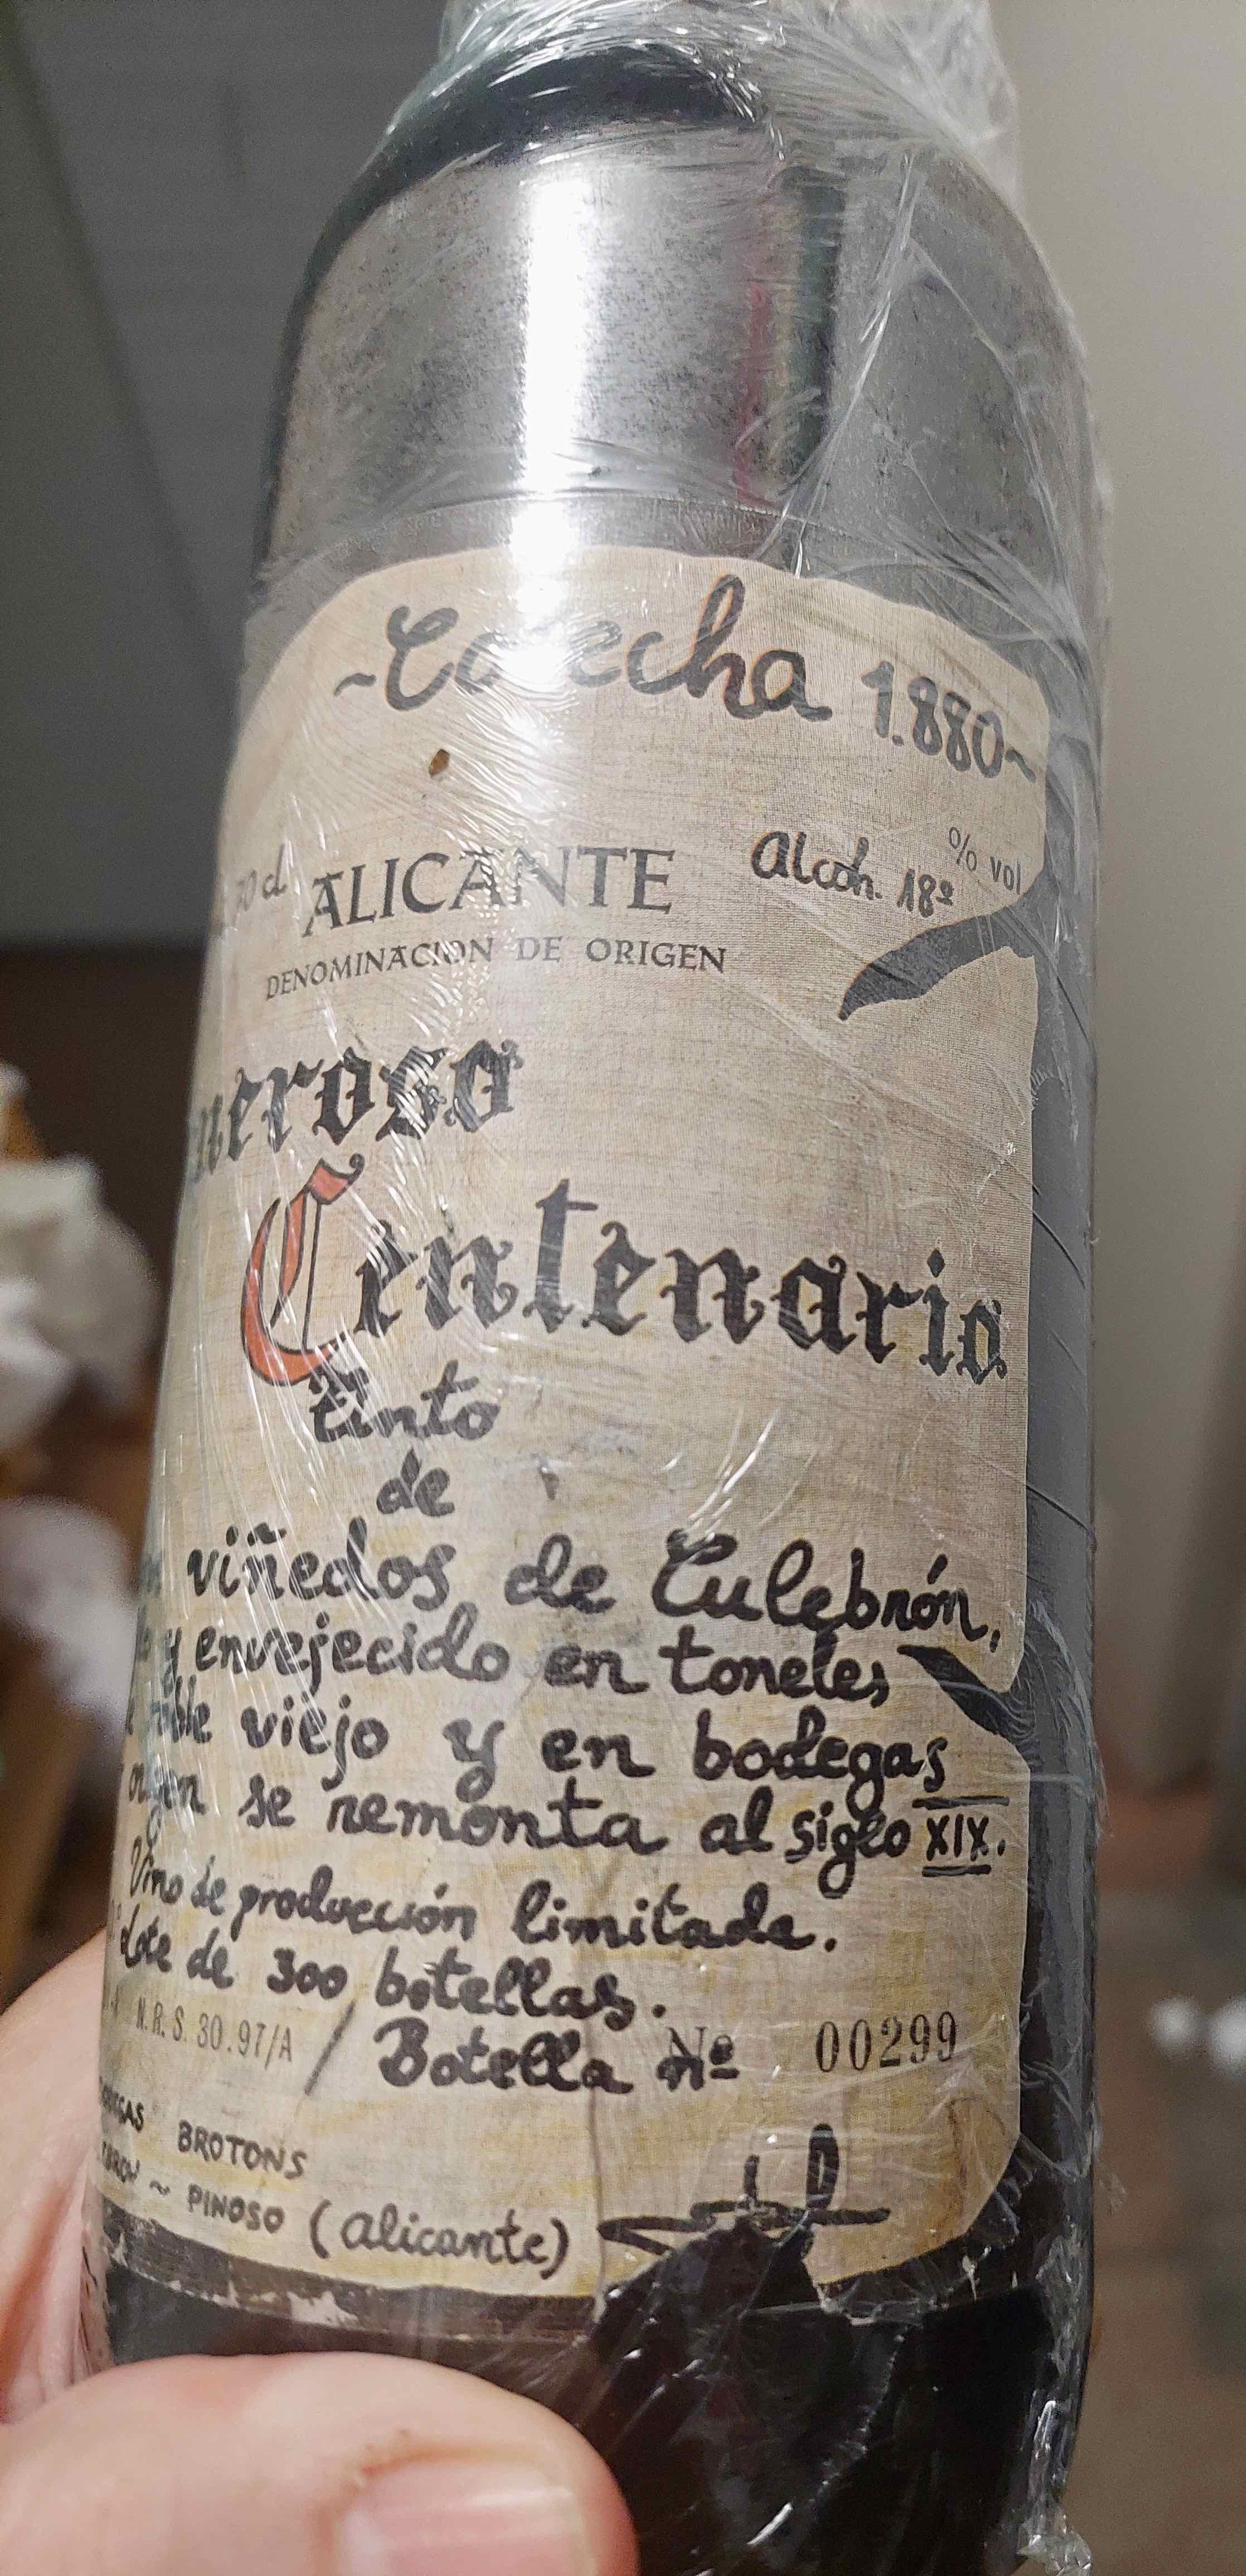 ~Cosecha 1.880~
70 cl ALICANTE Alcoh. 18º % vol
DENOMINACION DE ORIGEN
neroso
Centenario
Tinto
de
viñedos de Culebrón,
y envejecido en toneles
roble viejo y en bodegas
origen se remonta al siglo XIX.
Vino de producción limitada.
Lote de 300 botellas.
N.R.S. 30.97/A / Botella nº Nº 00299
BODEGAS BROTONS
~ PINOSO (Alicante)